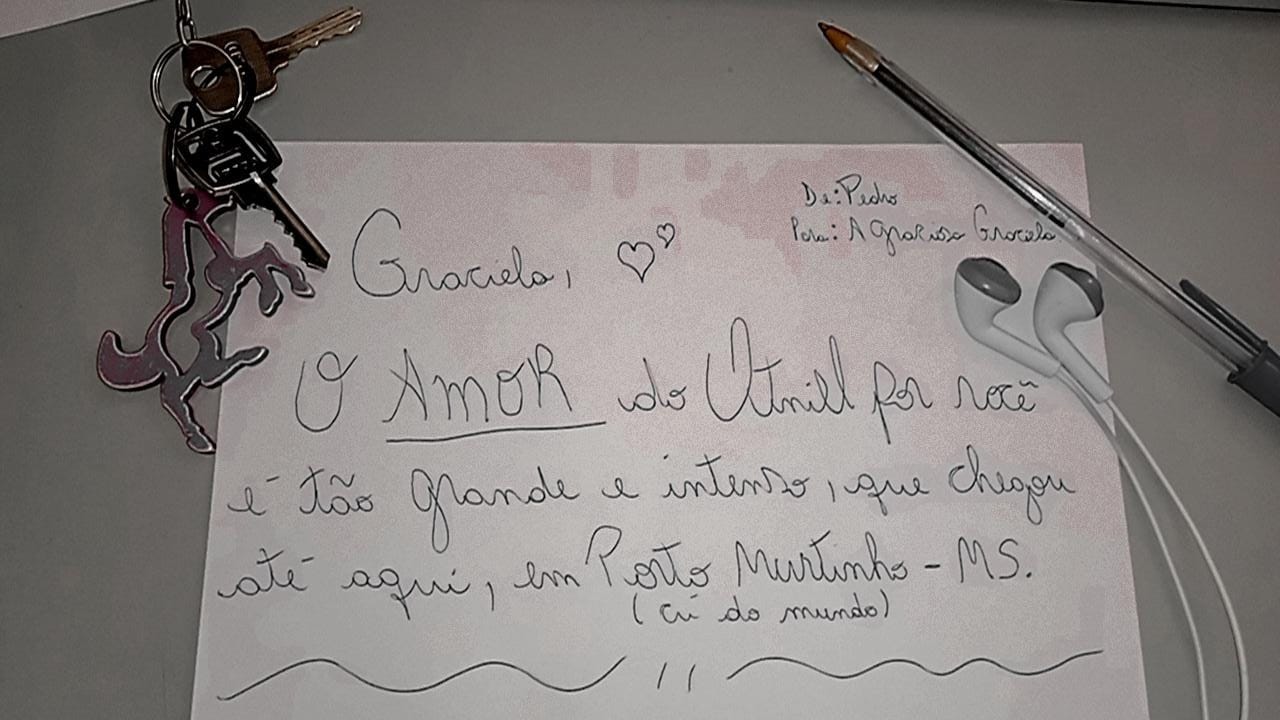 De: Pedro
Para: A graciosa Graciela
Graciela,
O AMOR do por você
é tão grande e intenso, que chegou
até aqui, em Porto Murtinho - MS.
(cú do mundo)